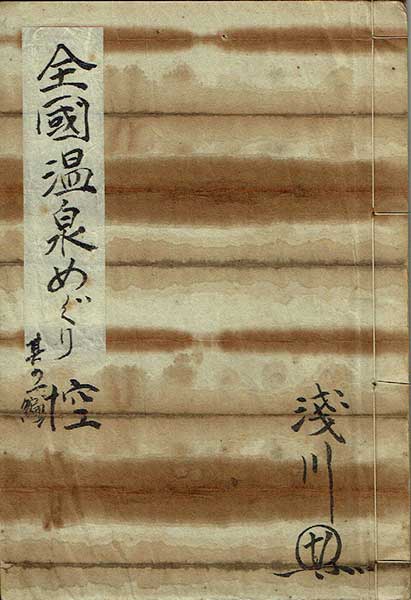 淺川
全國温泉めぐり控
其の